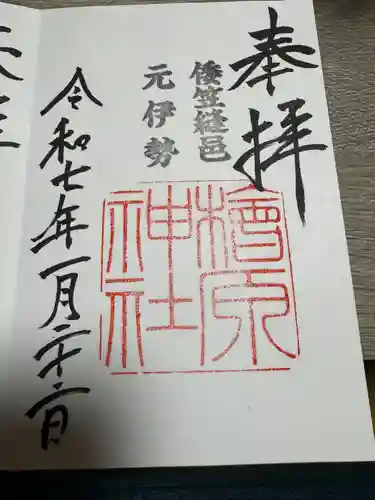 奉拝
倭笠縫邑
元伊勢
檜原神社
令和七年一月二十六日